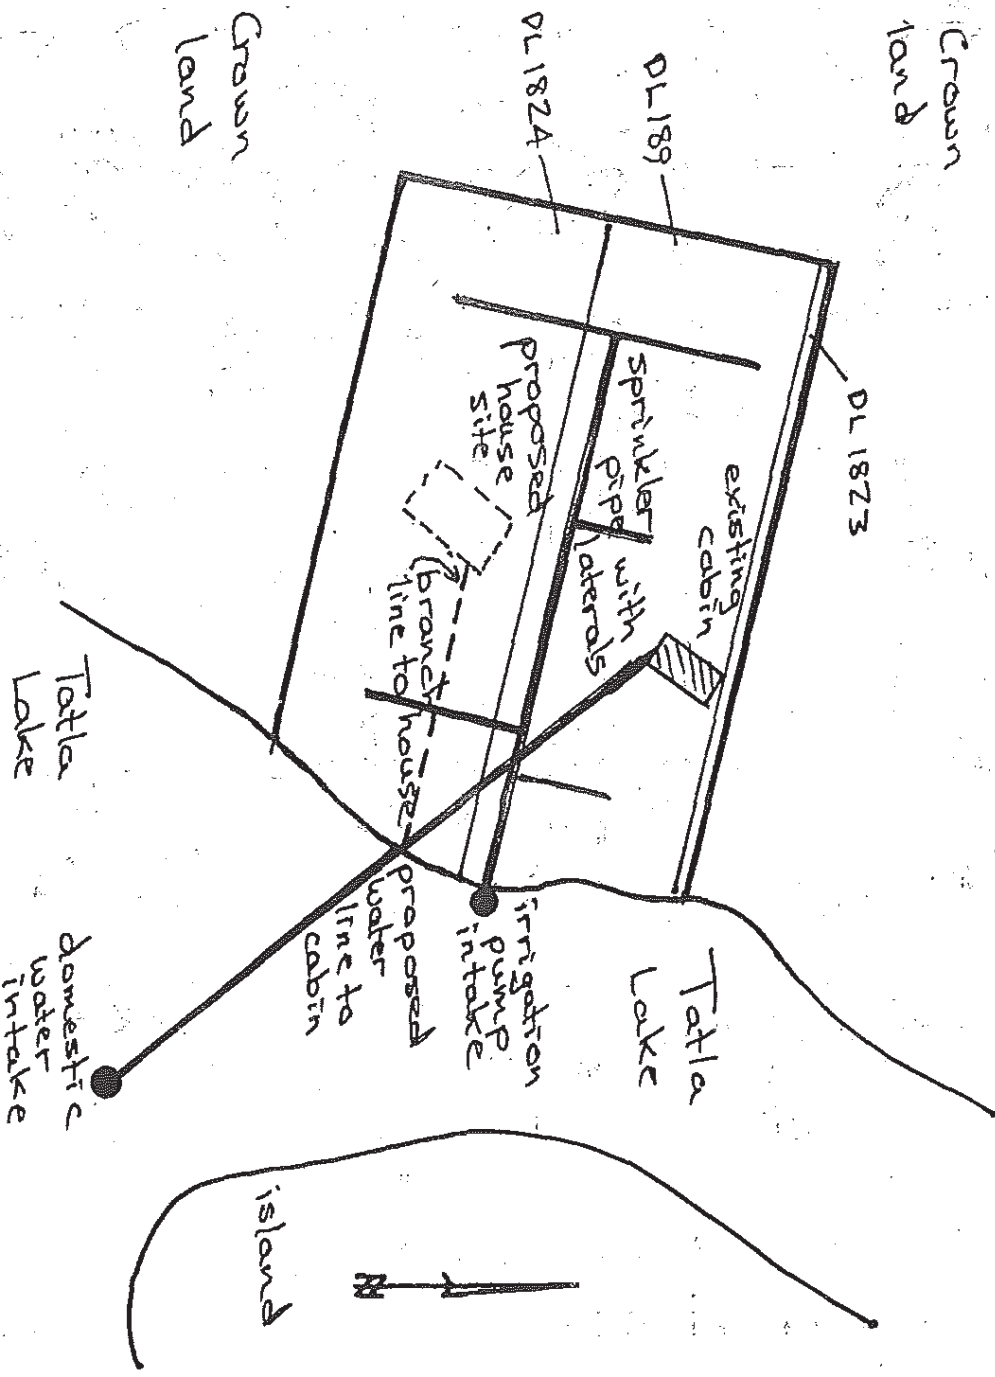 Crown
land
DL 189
DL 1824
Crown
land
DL 1823
existing
cabin
sprinkler
pipe with
laterals
proposed
house
site
branch
line to house
Tatla
Lake
irrigation
pump
intake
proposed
water
line to
cabin
Tatla
Lake
domestic
water
intake
island
N